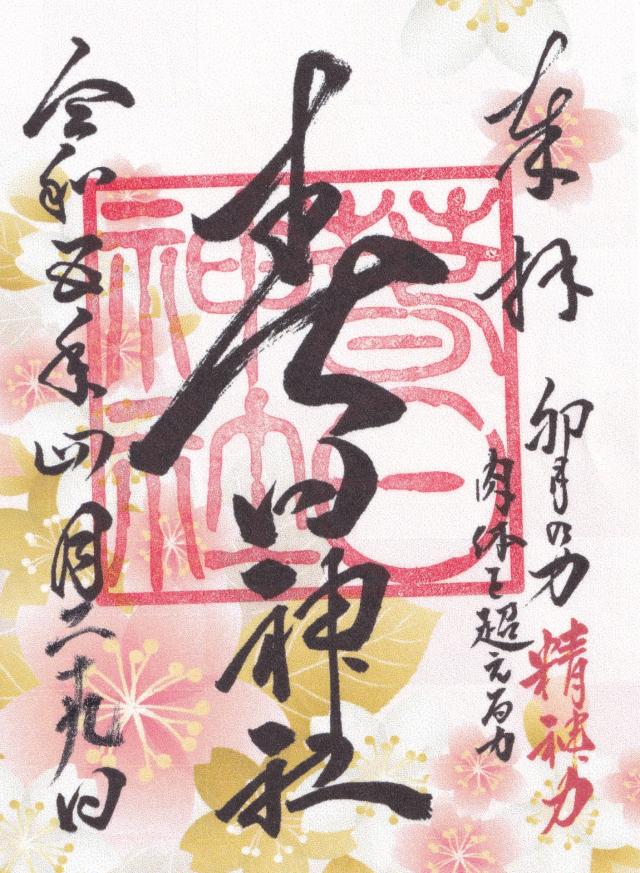 奉拝
卯月の力 精神力
肉体を超える力
春日神社
春日神社
令和五年四月二十九日